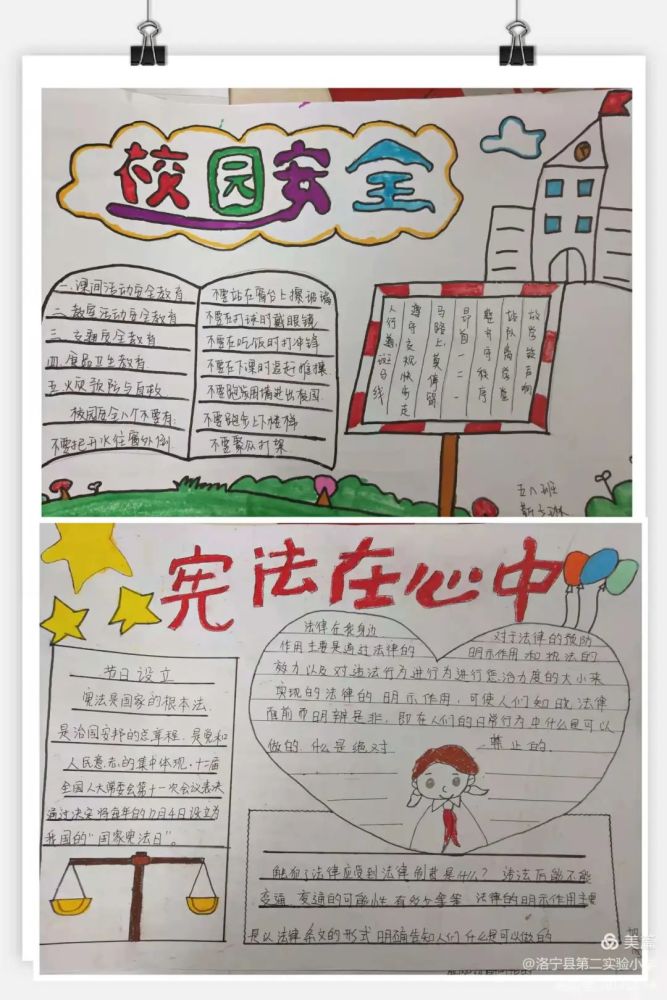 校园安全
一.课间活动安全教育
二.教室活动安全教育
三.交通安全教育
四.食品卫生教育
五.火灾预防与自救
校园安全八个不要有:
不要把开水往窗外倒
不要站在窗台上擦玻璃
不要在打球时戴眼镜
不要在吃饭时打冲锋
不要在下课时追赶推操
不要跑步上下楼梯
不要聚众打架
放学铃声响
站队离学堂
遵守秩序
昂首一二一
马路上莫停留
遵守交规快步走
人行道斑马线
五八班
宪法在心中
节日设立
宪法是国家的根本法.
是治国安邦的总章程.是党和
人民意志的集中体现.十二届
全国人大常委会第十一次会议表决
通过决定将每年的12月4日设立为
我国的“国家宪法日”。
法律在我身边
对于法律的预防
作用主要是通过法律的
明示作用和执法的
效力以及对违法行为进行为进行惩治力度的大小来
实现的法律的明示作用,可使人们知晓法律
而明辨是非,即在人们的日常行为中什么是可以
做的.什么是绝对
禁止的.
触犯了法律应受到法律制裁是什么?违法后能不能
变通,变通的可能性有多少等等.法律的明示作用主要
是以法律条文的形式明确告知人们什么是可以做的
美篇
@洛宁县第二实验小